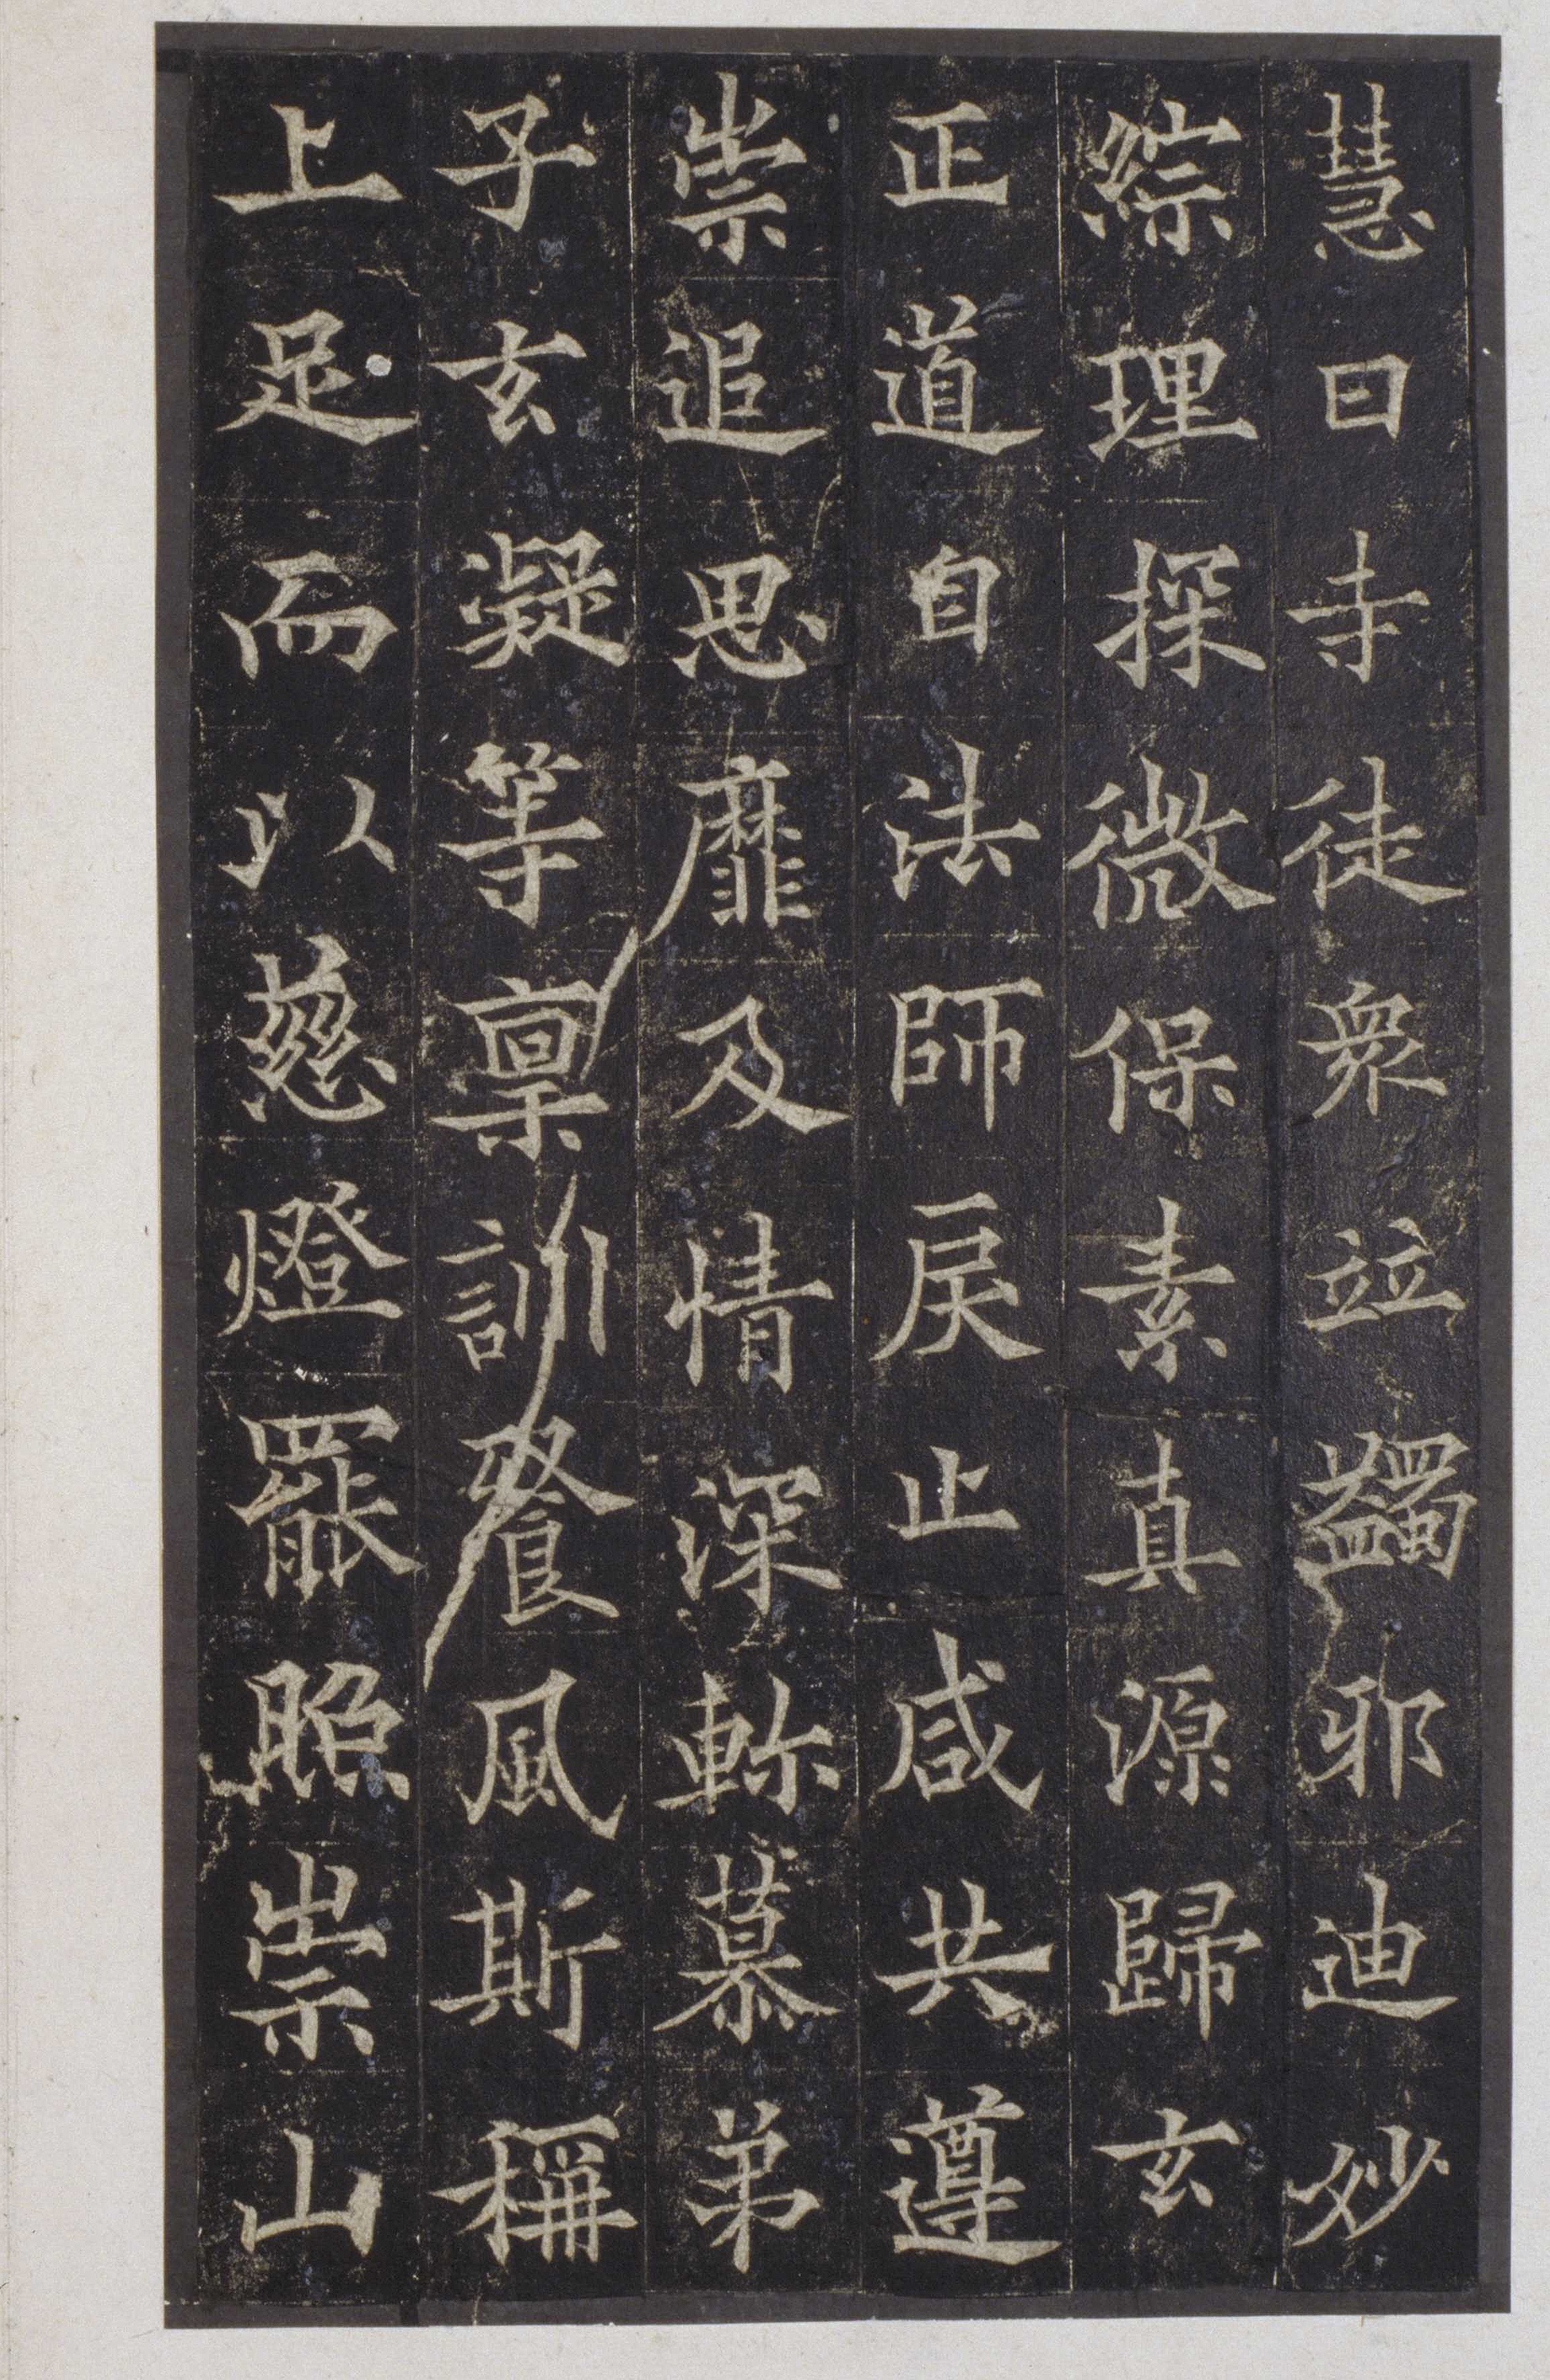 慧曰寺徒衆竝蠲邪迪妙
綜理探微保素真源歸玄
正道自法師戾止咸共遵
崇追思靡及情深軫慕弟
子玄凝等稟訓飡風斯稱
上足而以慈燈罷照崇山